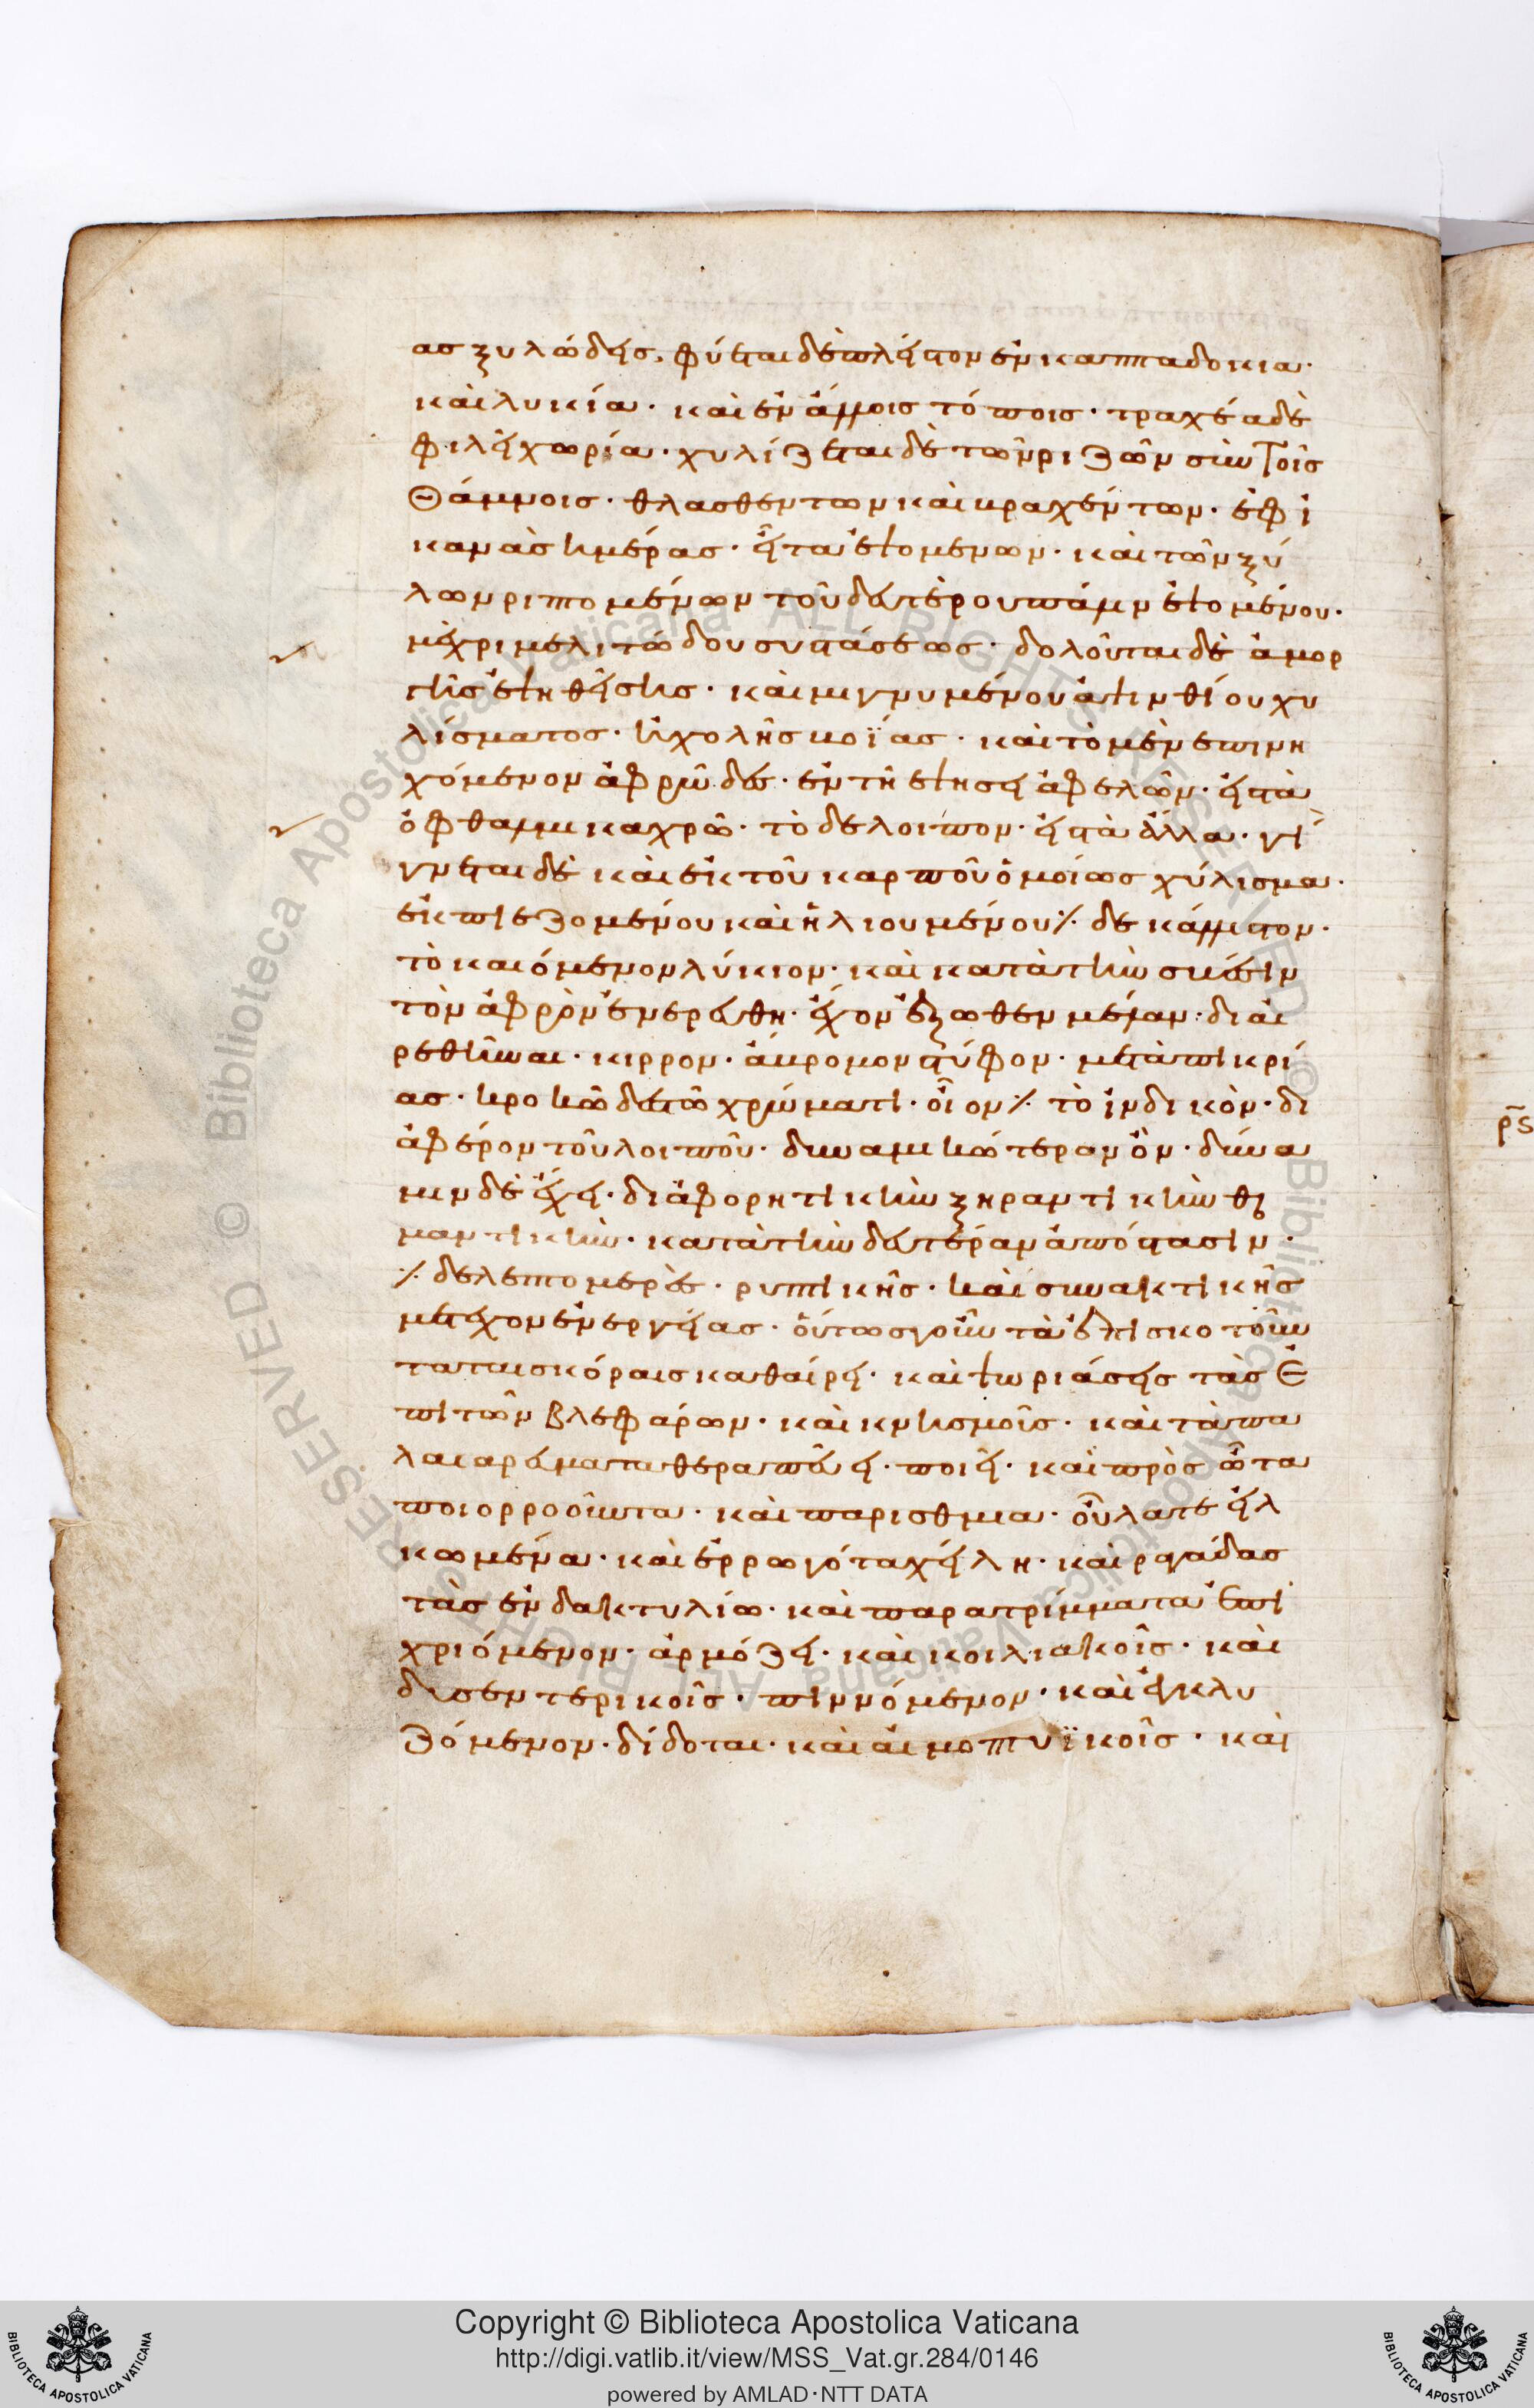 ας ξυλώδεις. φύεται δὲ πλεῖστον ἐν καππαδοκία·
καὶ λυκία· καὶ ἐν ἄλλοις τόποις· τραχέα δὲ
φιλεῖ χωρία· χυλίζεται δὲ τῶν ριζῶν σὺν τοῖς
θάμνοις· θλασθεντων καὶ βραχέντων· ἐφ ἱ
κανὰς ἡμέρας· εἶτα ἑψομενων· καὶ τῶν ξύ
λων ριπτομένων τοῦ δὲ ὑγροῦ πάλιν ἑψομένου·
μέχρι μελιτώδου συστάσεως· δολοῦται δὲ ἀμόρ
γης ἑψήσεις· καὶ μιγνυμένου ἀψινθίου χυ
λίσματος· ἢ χολῆς βοΐας· καὶ τὸ μὲν ἐπινη
χόμενον ἀφρῶδες· ἐν τῆ ἑψήσει ἀφελῶν· εἰς τὰ
ὀφθαλμικα χρῶ· τὸ δε λοιπον· εἰς τὰ ἄλλα· γί
γνεται δὲ καὶ ἐκ τοῦ καρποῦ ὁμοίως χύλισμα·
ἐκπιεζομένου καὶ ἡλιουμένου ⁒ δε κάλλιστον·
τὸ καιόμενον λύκιον· καὶ κατὰ τὴν σβέσιν
τὸν ἀφρὸν ἐνερευθῆ· ἔχον ἔξωθεν μέλαν· διαι
ρεθὲν και· κιρρον· ἄβρομον στύφον· μετὰ πικρί
ας· κροκῶδες τῶ χρώματι· οἷον ⁒ τὸ ἰνδικὸν· δι
ἀφέρον τοῦ λοιποῦ· δυναμικώτεραν ὂν· δύνα
μιν δὲ ἔχει· διαφορητικὴν ξηραντικὴν θερ
μαντικὴν· κατὰ τὴν δευτέραν ἀπόστασιν·
⁒ δε λεπτομερὲς· ρυπτικῆς· καὶ συνακτικῆς
μετέχον ἐνεργείας· οὕτως γοῦν τὰ ἐπισκοτοῦν
τα ταις κόραις καθαίρει· καὶ ψωριάσεις τὰς ἐ
πὶ τῶν βλεφάρων· καὶ κνησμοῖς· καὶ τὰ πα
λαια ρεύματα θεραπεύει· ποιεῖ· καὶ πρὸς ὦτα
πυορροοῦντα· καὶ παρισθμια· οὖλα τε εἱλ
κωμένα· καὶ ἐρρωγότα χείλη· καὶ ραγάδας
τὰς ἐν δακτυλίω· καὶ παρατρίμματα ἐπι
χριόμενον· ἁρμόζει· καὶ κοιλιακοῖς· καὶ
δυσεντερικοῖς· πινόμενον· καὶ ἐγκλυ
ζόμενον· δίδοται· καὶ αἱμοπτυϊκοῖς· καὶ
ρς
Copyright © Biblioteca Apostolica Vaticana
http://digi.vatlib.it/view/MSS_Vat.gr.284/0146
powered by AMLAD·NTT DATA
BIBLIOTECA APOSTOLICA VATICANA
BIBLIOTECA APOSTOLICA VATICANA